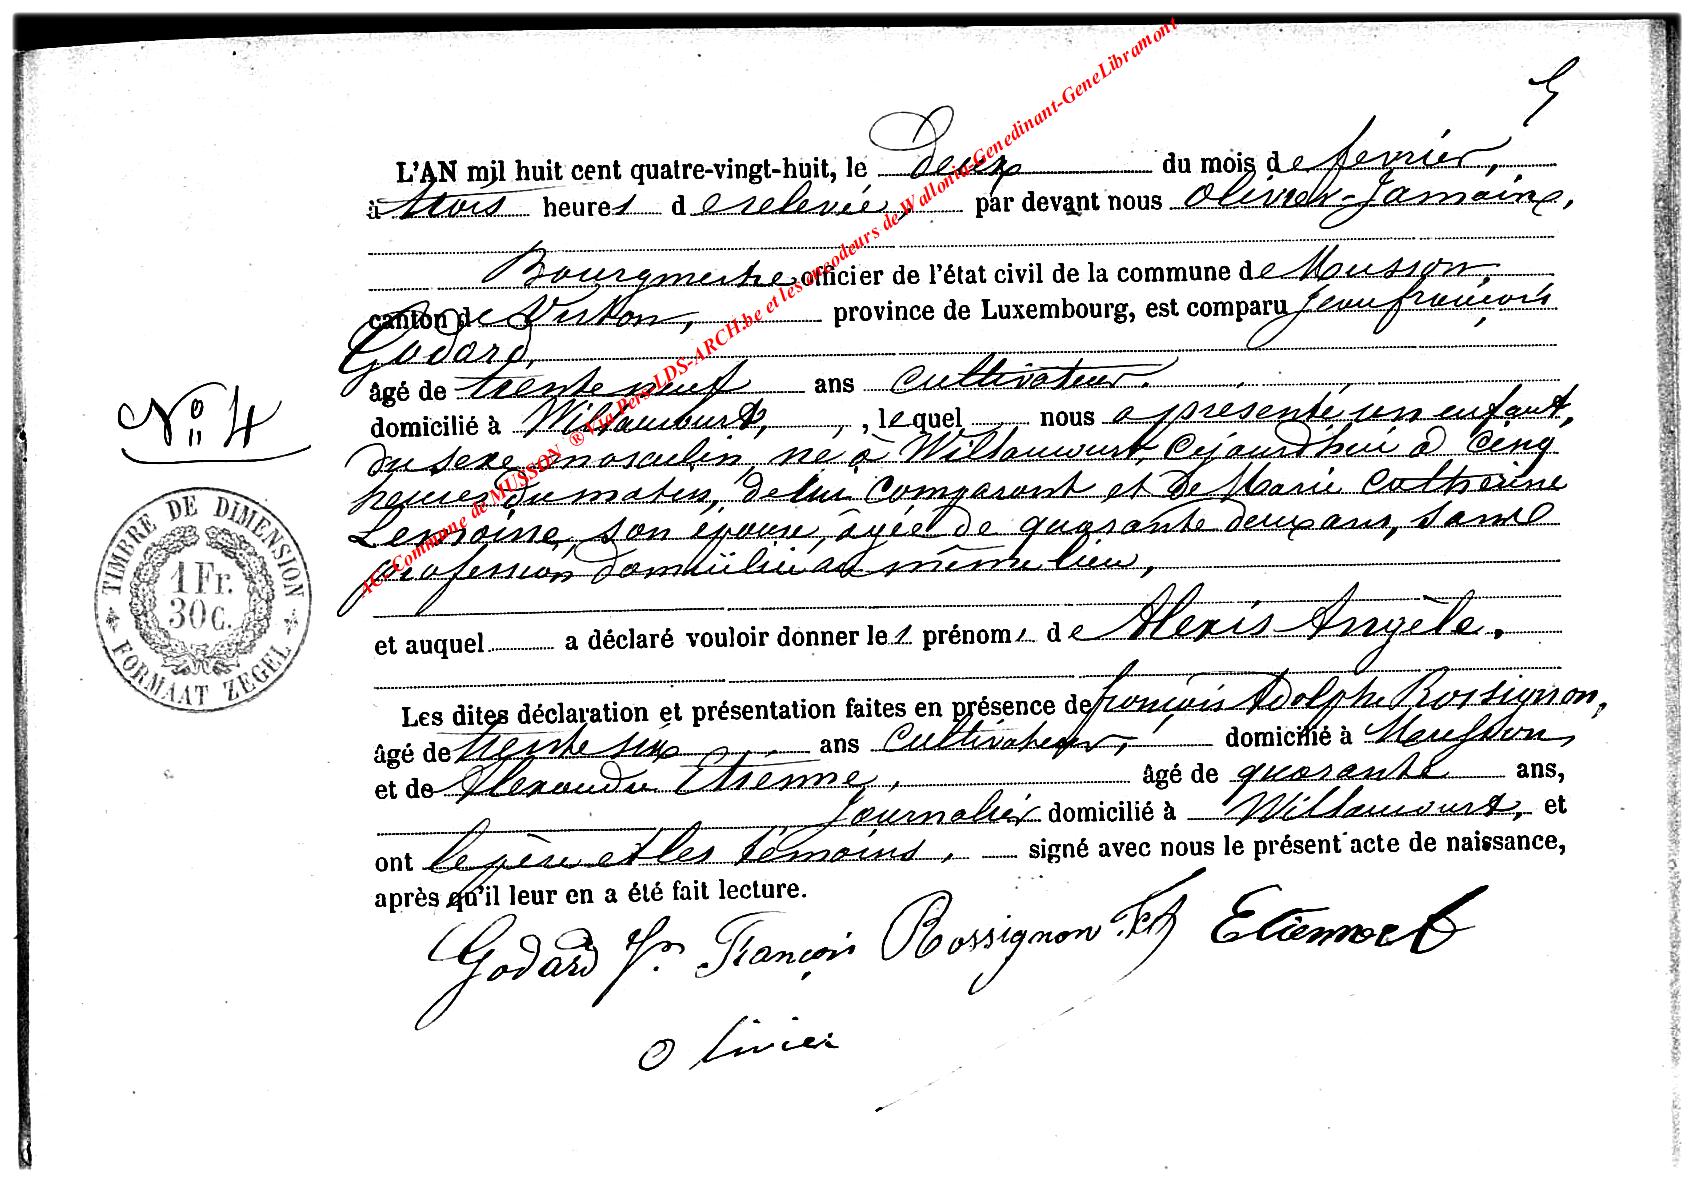 5
L'AN mil huit cent quatre-vingt-huit, le deux du mois de fevrier,
à trois heures de relevée, par devant nous Olivier-Jamaine,
Bourgmestre officier de l'état civil de la commune de Musson,
canton de Virton, province de Luxembourg, est comparu Jean françois
Godard,
âgé de trente neuf ans cultivateur.
domicilié à Willancourt, , lequel nous a présenté un enfant,
du sexe masculin, né à Willancourt, cejourd'hui à cinq
heures du matin, de lui comparant et de Marie Catherine
Lemoine, son épouse, âgée de quarante deux ans, sans
profession domiciliée au même lieu,
et auquel a déclaré vouloir donner les prénoms de Alexis Angèle.
Les dites déclaration et présentation faites en présence de françois Adolphe Rossignon,
âgé de trente six ans cultivateur, domicilié à Musson,
et de Alexandre Etienne, âgé de quarante ans,
Journalier domicilié à Willancourt, et
ont le père et les témoins, signé avec nous le présent acte de naissance,
après qu'il leur en a été fait lecture.
Godard Jn François Rossignon Etienne
Olivier
No 4
TIMBRE DE DIMENSION
1 Fr.
30 C.
FORMAAT ZEGEL
(C) Commune de MUSSON ® Via Pers LDS-ARCH.be et les encodeurs de Wallonia-Genedinant-GeneLibramont